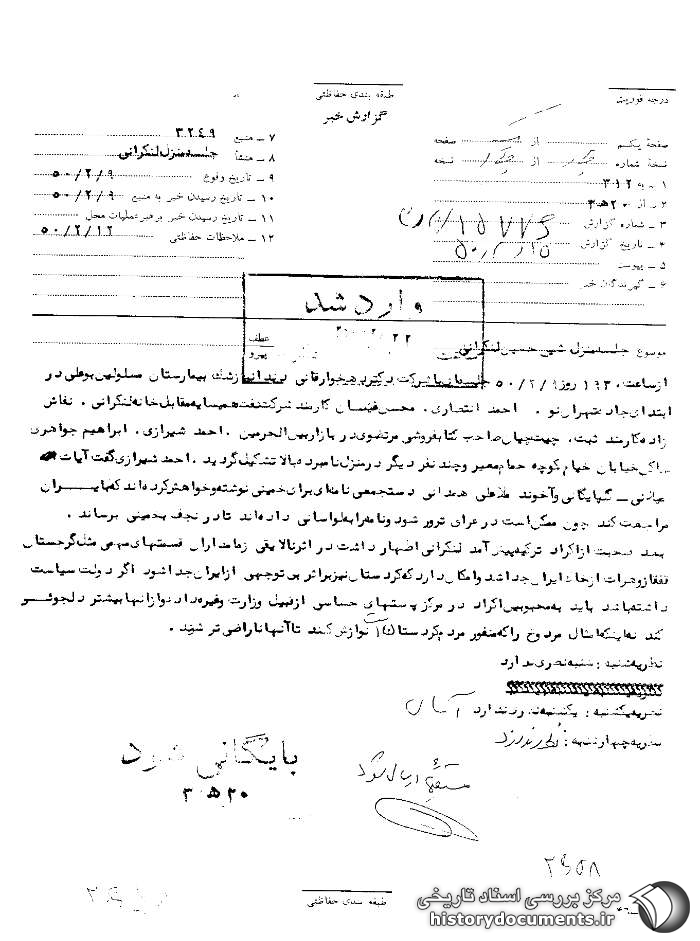 درجه فوریت
طبقه بندی حفاظتی
گزارش خبر
صفحهٔ یکم از صفحه
نسخهٔ شماره از نسخه
۱ - به ۳۱۲
۲ - از ۲۰ ه ۳
۳ - شماره گزارش
۴ - تاریخ گزارش
۵ - پیوست
۶ - گیرندگان خبر
۷ - منبع ۳۲۴۹
۸ - منشأ جلسه منزل لنکرانی
۹ - تاریخ وقوع ۵۰/۲/۹
۱۰ - تاریخ رسیدن خبر به منبع ۵۰/۲/۹
۱۱ - تاریخ رسیدن خبر برهبر عملیات محل
۱۲ - ملاحظات حفاظتی ۵۰/۲/۱۲
وارد شد
عطف
پیرو
موضوع جلسه منزل شیخ حسین لنکرانی
از ساعت ۱۹۳۰ روز ۵۰/۲/۹ جلسه‌ای با شرکت دکتر ده خوارقانی پزشک بیمارستان مسلولین بوعلی در
ابتدای جاده تهران نو ، احمد انتصاری ، محسن کارمند شرکت نفت همسایه مقابل خانه لنکرانی ، نقاش
زاده کارمند ثبت ، چیت چیان صاحب کتابفروشی مرتضوی در بازار بین الحرمین ، احمد شیرازی ، ابراهیم جواهری
ساکن خیابان خیام کوچه حمام معیر و چند نفر دیگر در منزل نامبرده بالا تشکیل گردید . احمد شیرازی گفت آیات
میلانی - گلپایگانی و آخوند ملاعلی همدانی دستجمعی نامه‌ای برای خمینی نوشته و خواهش کرده‌اند که بایران
مراجعت کند چون ممکن است در عراق ترور شود و نامه را به لواسانی داده‌اند تا در نجف بخمینی برساند .
بعد صحبت از اکراد ترکیه پیش آمد لنکرانی اظهار داشت در اثر نالایقی زمامداران قسمتهای مهمی مثل گرجستان
قفقاز و هرات از خاک ایران جدا شد و امکان دارد که کردستان نیز براثر بی توجهی از ایران جدا شود اگر دولت سیاست
داشته باشد باید به محبوبین اکراد در مرکز پستهای حساسی از قبیل وزارت و غیره داد تا از آنها بیشتر دلجوئی
کند نه اینکه امثال مردوخ را که منفور مردم کردستان است نوازش کنند تا آنها ناراضی تر شوند .
نظریه شنبه : شنبه نظری ندارد
نظریه یکشنبه : یکشنبه نظری ندارد
نظریه چهارشنبه : نظری ندارد
مستقیماً ارسال شود
بایگانی شود
۲۰ ه ۳
طبقه بندی حفاظتی
مرکز بررسی اسناد تاریخی
historydocuments.ir